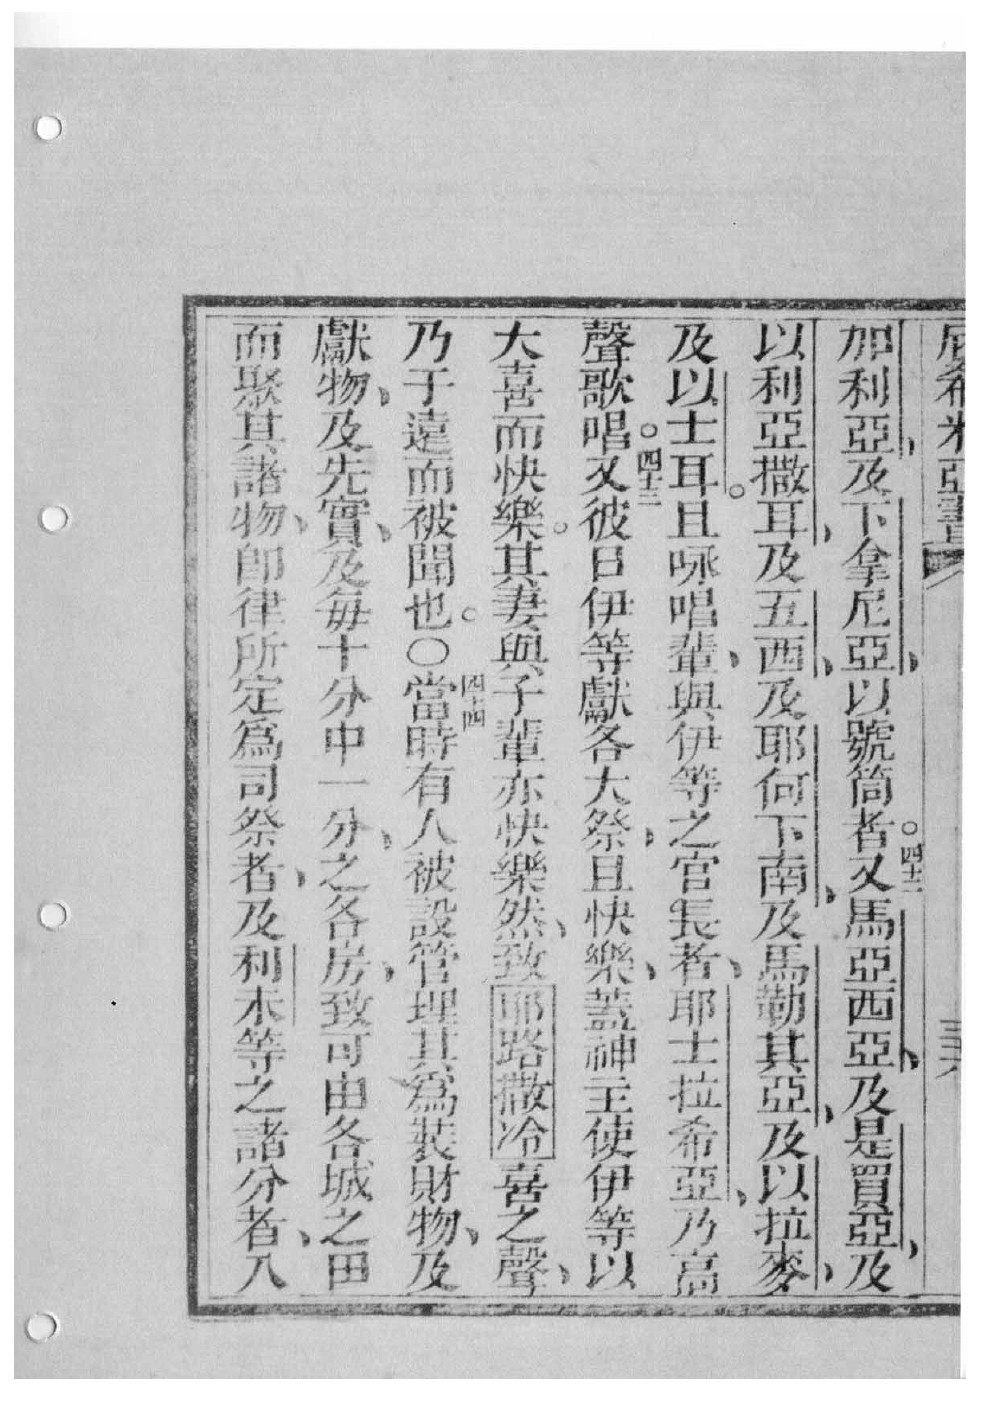 尼希米亞書
加利亞、及下拿尼亞、以號筒者。四十二又馬亞西亞、及是買亞、及
以利亞撒耳、及五西、及耶何下南、及馬勒其亞、及以拉麥、
及以士耳。且咏唱輩、與伊等之官長者、耶士拉希亞、乃高
聲歌唱。四十三又彼日伊等獻各大祭、且快樂、蓋神主使伊等以
大喜而快樂。其妻與子輩亦快樂然、致耶路撒冷喜之聲、
乃于遠而被聞也。○四十四當時有人被設管理其爲裝財物、及
獻物、及先實、及每十分中一分、之各房、致可由各城之田
而聚其諸物、卽律所定爲司祭者、及利未等之諸分者、入